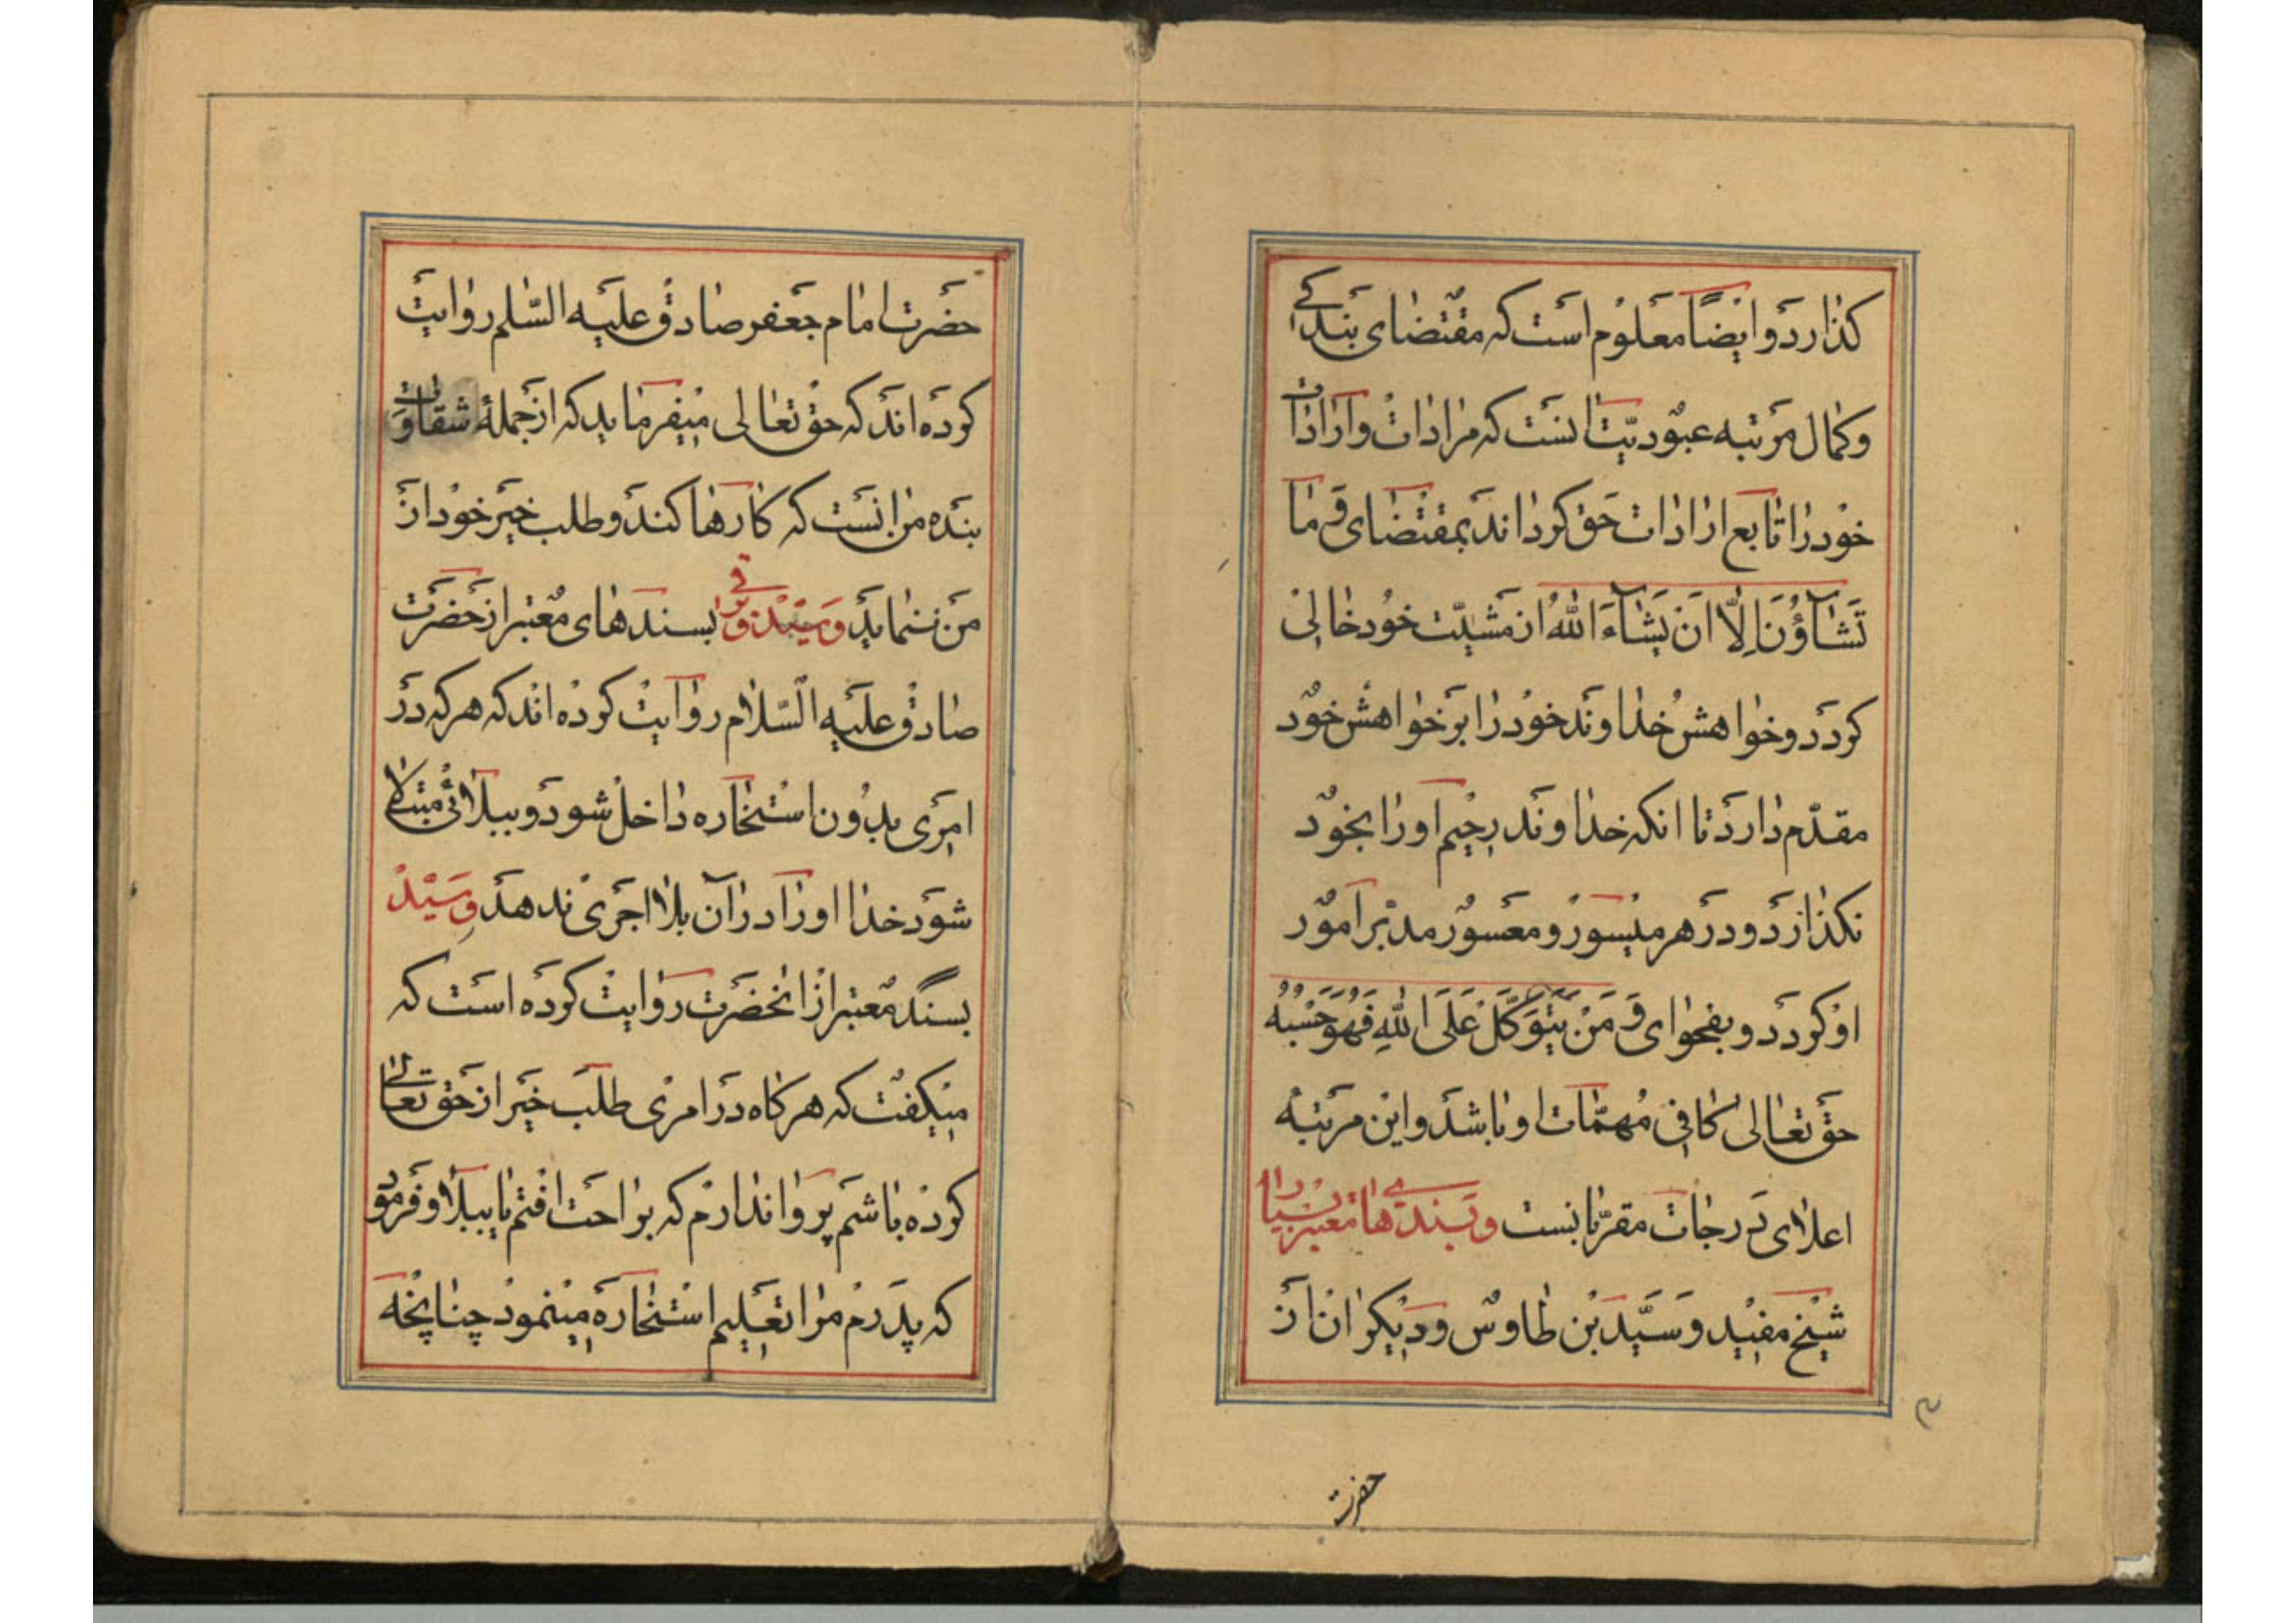 کذارد و ایضًا معلوم است که مقتضای بندکی
و کمال مرتبه عبودیّت انست که مرادات و ارادات
خود را تابع ارادات حق کرداند بمقتضای وَ ما
تَشَآؤُنَ اِلّا اَنْ یَشَآءَ اللهُ از مشیّت خود خالی
کردد و خواهش خداوند خود را بر خواهش خود
مقدّم دارد تا انکه خداوند رحیم او را بخود
نکذارد و در هر میسور و معسور مدبّر امور
او کردد و بفحوای وَ مَنْ یَتَوَکَّلْ عَلَی اللهِ فَهُوَ حَسْبُهُ
حق تعالی کافی مُهمّات او باشد و این مرتبه
اعلای درجات مقرّبانست و بسندهای معتبر بسیار
شیخ مفید و سَیّد بن طاوس و دیکران از
حضرت
حضرت امام جعفر صادق علیه السّلم روایت
کرده اند که حق تعالی میفرماید که از جملهٔ شقاوت
بنده من انست که کارها کند و طلب خیر خود از
من ننماید و سَیّد و برقی بسندهای مُعتبر از حضرت
صادق علیه السّلام روایت کرده اند که هر که در
امری بدون استخاره داخل شود و ببلائی مبتلا
شود خدا او را در آن بلا اجری ندهد و سَیّد
بسند مُعتبر از انحضرت روایت کرده است که
میکفت که هر کاه در امری طلب خیر از حق تعالی
کرده باشم پروا ندارم که براحت افتم یا ببلا و فرمود
که پدرم مرا تعلیم استخاره مینمود چنانچه